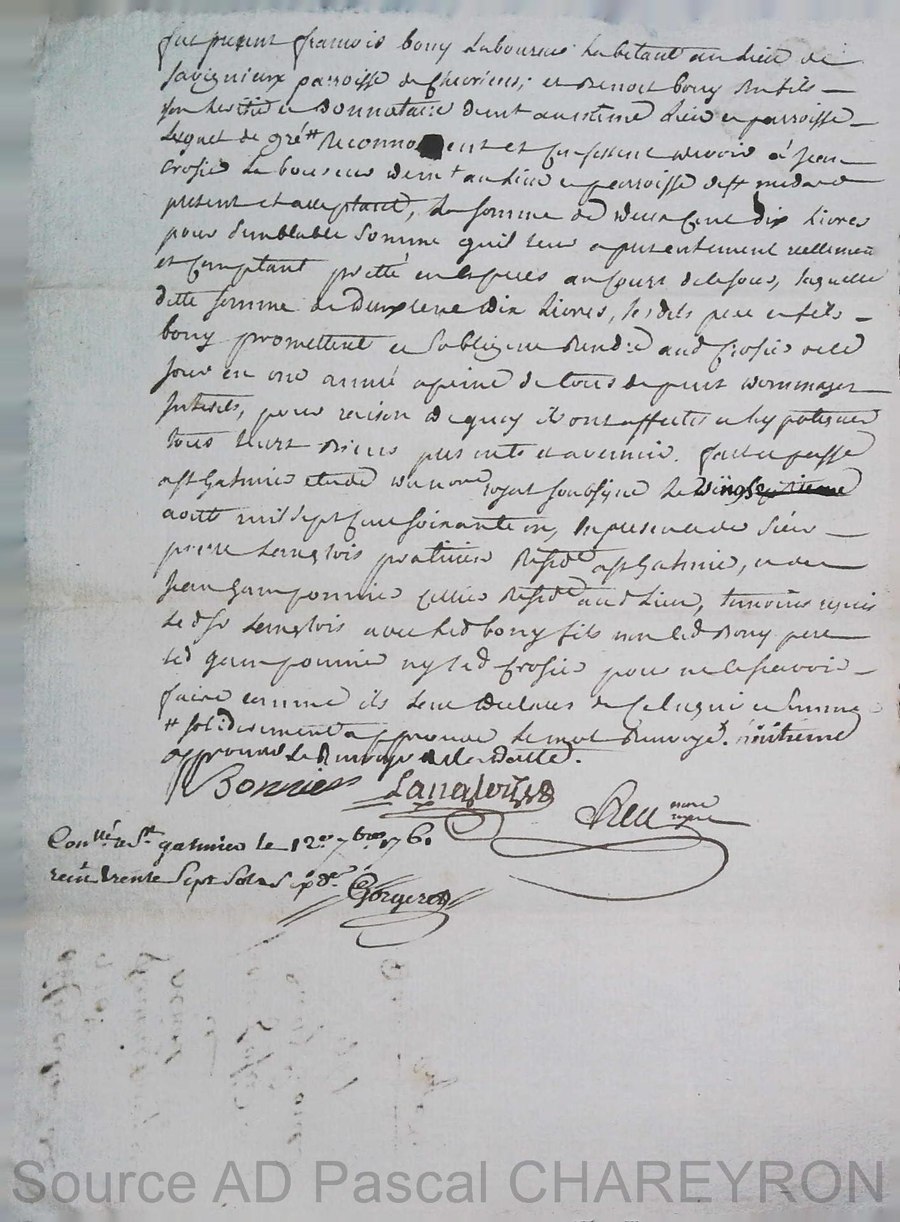 fut present francois bony Laboureur habitant au Lieu de
Savignieux parroisse de Chevrieres, et Benoit bony Son fils
son heritié et Donnataire demt au meme Lieu et parroisse
Lequel de gré # Reconnoissent et Confessent devoir á Jean
Crosier Laboureur demt au Lieu et parroisse de st medard
present et acceptant, La somme de deux Cent dix Livres
pour Semblable Somme quil leur a presentement reellement
et Comptant pretté en especes au Cours de ce jour, laquelle
ditte somme de Deux Cent Dix Livres, les dits pere et fils
bony promettent et Sobligent Rendre aud Crosier de ce
Jour en une année a peine de tous depens dommages
Interets, pour raison de quoy ils ont affectés et hypotequés
tous Leurs Biens presents et avenir. fait et passé
a st Galmier etude du nore royal soubsigné Le
aoust mil sept Cent soixante un, En presence de Sieur
pierre Langlois praticien Residt a st Galmier, et de
Jean gamponnier Residt aud Lieu, temoins requis
Le d sr Langlois avec Led bony fils non led Bony pere
led gamponnier ny led Crosier pour ne le scavoir
faire comme ils l'ont declarés de Ce enquis et Sommés
# solidairement approuvé Le mot Renvoyé. huitieme
approuvé Le Renvoy et la datte.
Bonnier Langlois
nore royal
Conllé a St galmier le 12e 7bre 1761
reçu trente Sept Sols Six de Gorgeret
Source AD Pascal CHAREYRON